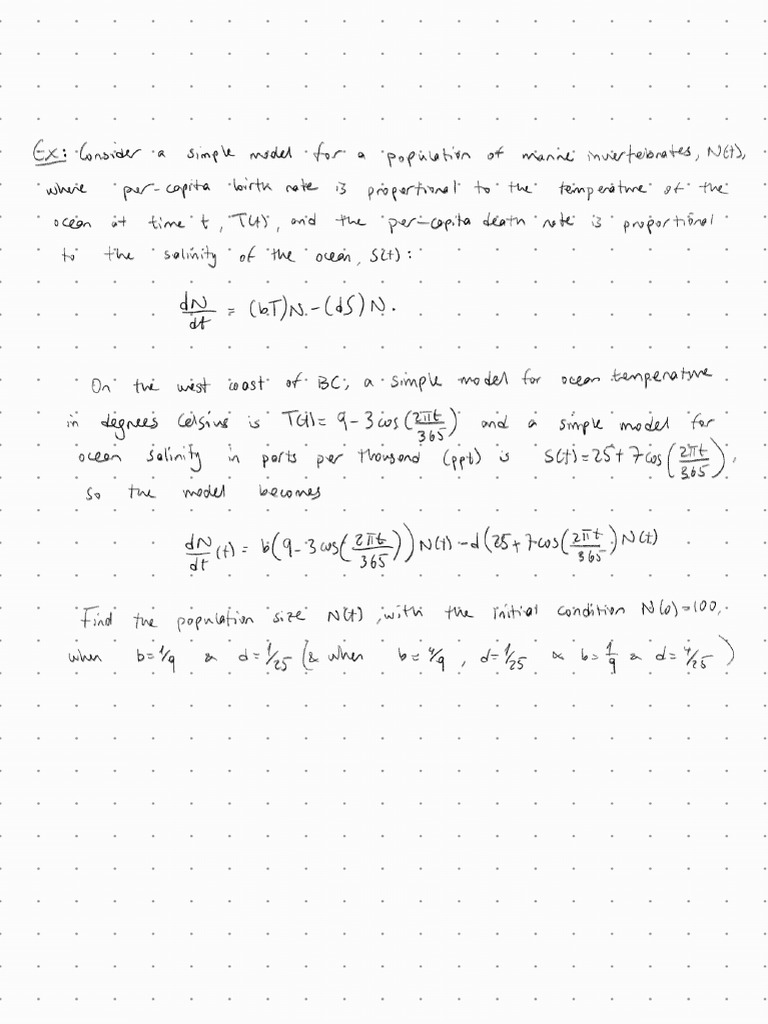 Ex: Consider a simple model for a population of marine invertebrates, N(t),
where per-capita birth rate is proportional to the temperature of the
ocean at time t, T(t), and the per-capita death rate is proportional
to the salinity of the ocean, S(t):
dN/dt = (bT)N - (dS)N.
On the west coast of BC, a simple model for ocean temperature
in degrees Celsius is T(t) = 9 - 3cos(2πt/365) and a simple model for
ocean salinity in parts per thousand (ppt) is S(t) = 25 + 7cos(2πt/365),
so the model becomes
dN/dt (t) = b(9 - 3cos(2πt/365))N(t) - d(25 + 7cos(2πt/365)N(t)
Find the population size N(t), with the initial condition N(0) = 100,
when b = 1/9 & d = 1/25 (& when b = 4/9, d = 1/25 & b = 1/9 & d = 4/25)